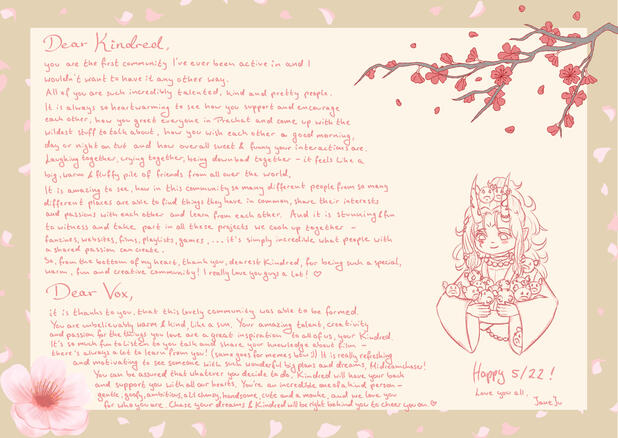 Dear Kindred,
you are the first community I've ever been active in and I
wouldn't want to have it any other way.
All of you are such incredibly talented, kind and pretty people.
It is always so heartwarming to see how you support and encourage
each other, how you greet everyone in Prechat and come up with the
wildest stuff to talk about, how you wish each other a good morning,
day or night on twt and how overall sweet & funny your interactions are.
Laughing together, crying together, being down bad together - it feels like a
big, warm & fluffy pile of friends from all over the world.
It is amazing to see, how in this community so many different people from so many
different places are able to find things they have in common, share their interests
and passions with each other and learn from each other. And it is stunning & fun
to witness and take part in all these projects we cook up together -
fanzines, websites, films, playlists, games, ... it's simply incredible what people with
a shared passion can create.
So, from the bottom of my heart, thank you, dearest Kindred, for being such a special,
warm, fun and creative community! I really love you guys a lot! ♡
Dear Vox,
it is thanks to you, that this lovely community was able to be formed.
You are unbelievably warm & kind, like a sun. Your amazing talent, creativity
and passion for the things you love are a great inspiration to all of us, your Kindred.
It's so much fun to listen to you talk and share your knowledge about film -
there's always a lot to learn from you! (same goes for memes btw :)) It is really refreshing
and motivating to see someone with such wonderful big plans and dreams,
You can be assured that whatever you decide to do, Kindred will have your back
and support you with all our hearts. You're an incredible me of a kind person -
gentle, goofy, ambitious, a lil clumsy, handsome, cute and a and we love you
for who you are. Chase your dreams & Kindred will be right behind you to cheer you on ♡
Happy 5/22!
Love you all,
JaneJu